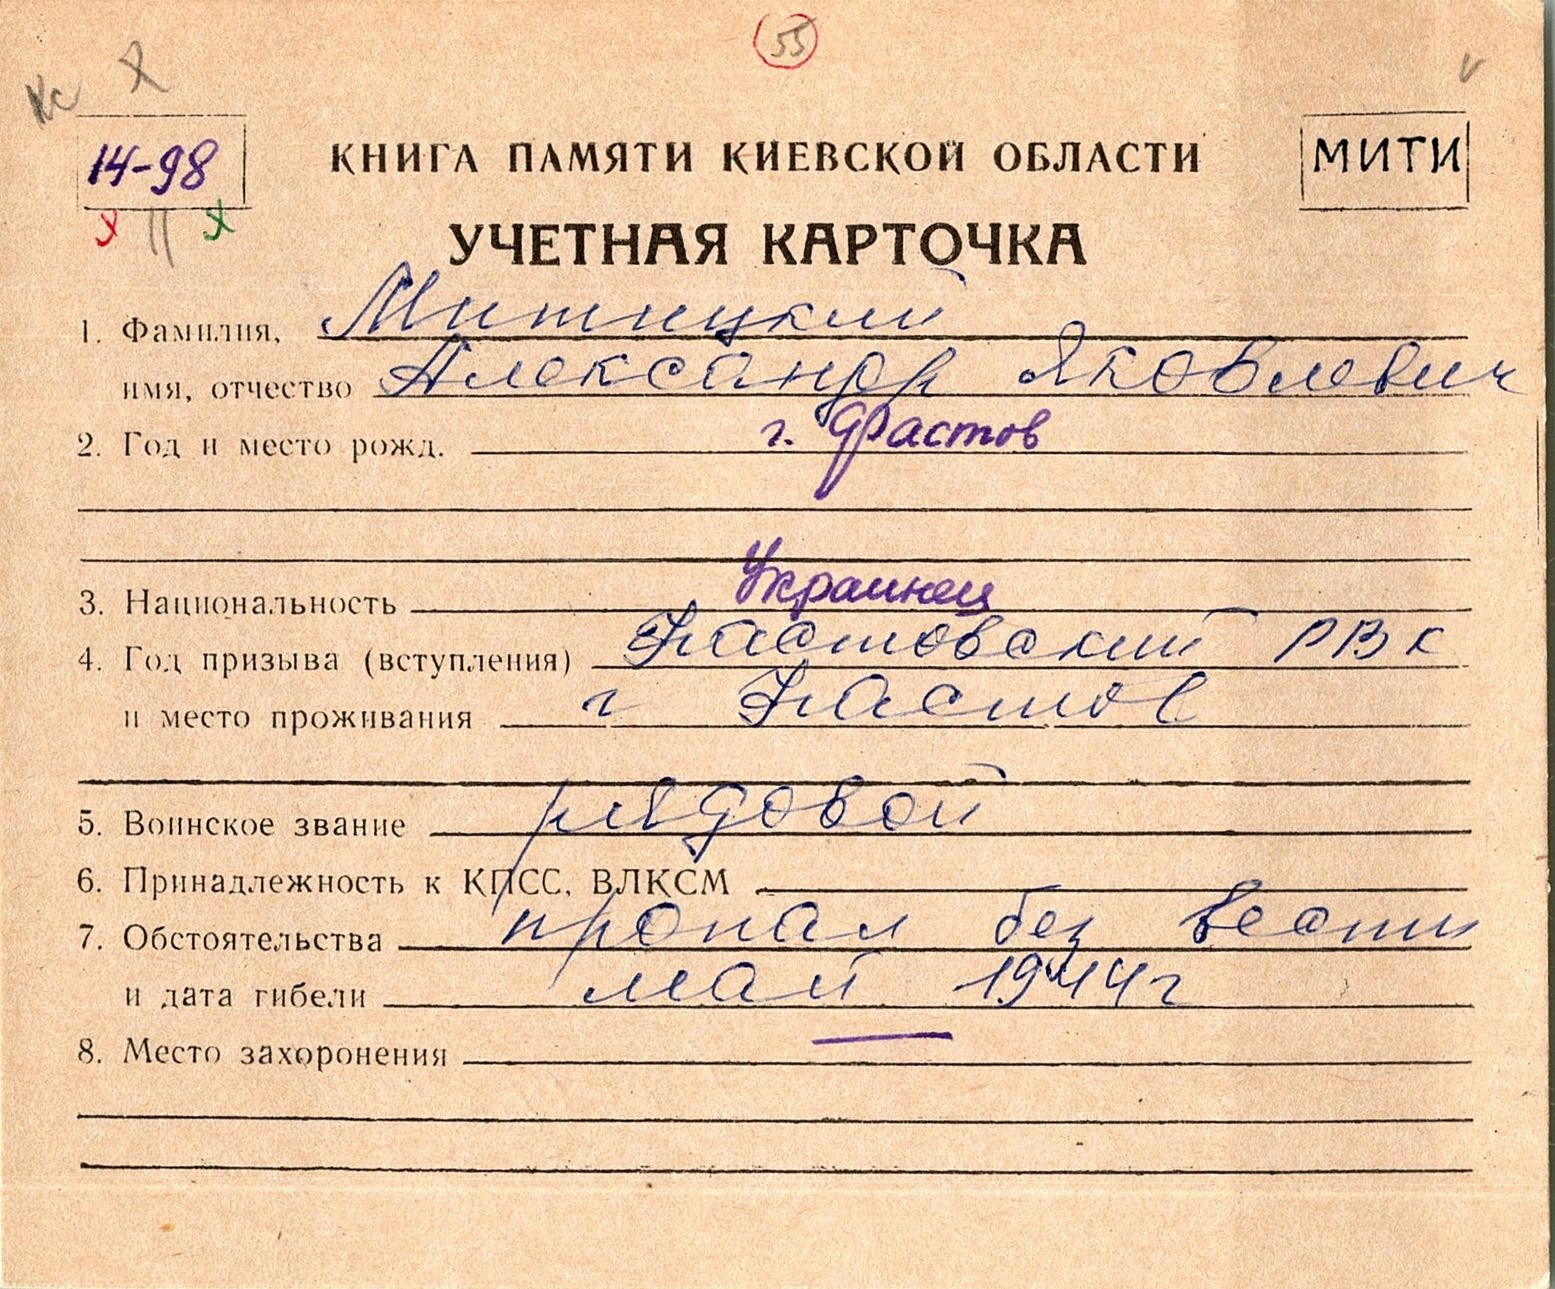 55
Кс
14-98
КНИГА ПАМЯТИ КИЕВСКОЙ ОБЛАСТИ
МИТИ
УЧЕТНАЯ КАРТОЧКА
1. Фамилия, Митницкий
имя, отчество Александр Яковлевич
2. Год и место рожд. г. Фастов
3. Национальность Украинец
4. Год призыва (вступления) Фастовский РВК
и место проживания г Фастов
5. Воинское звание рядовой
6. Принадлежность к КПСС, ВЛКСМ
7. Обстоятельства пропал без вести
и дата гибели май 1944г
8. Место захоронения —